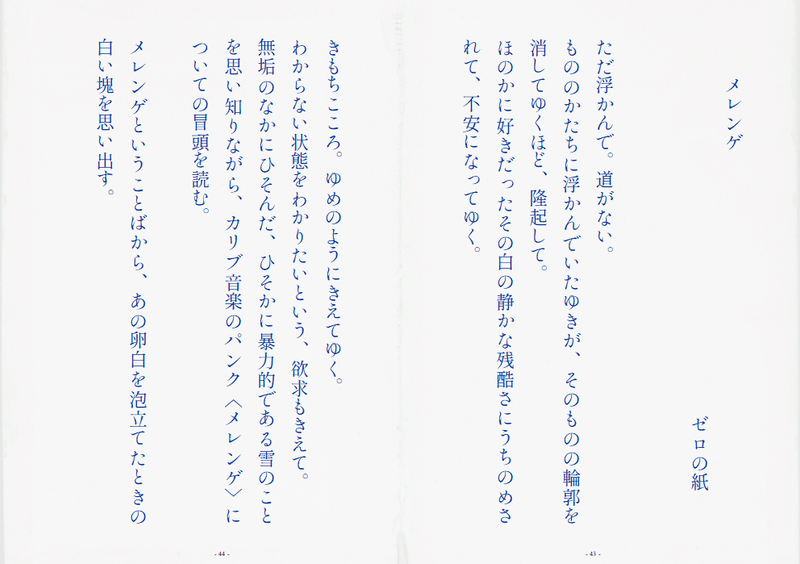 メレンゲ
ゼロの紙
ただ浮かんで。道がない。
もののかたちに浮かんでいたゆきが、そのものの輪郭を
消してゆくほど、隆起して。
ほのかに好きだったその白の静かな残酷さにうちのめさ
れて、不安になってゆく。
- 43 -
きもちこころ。ゆめのようにきえてゆく。
わからない状態をわかりたいという、欲求もきえて。
無垢のなかにひそんだ、ひそかに暴力的である雪のこと
を思い知りながら、カリブ音楽のパンク〈メレンゲ〉に
ついての冒頭を読む。
メレンゲということばから、あの卵白を泡立てたときの
白い塊を思い出す。
- 44 -